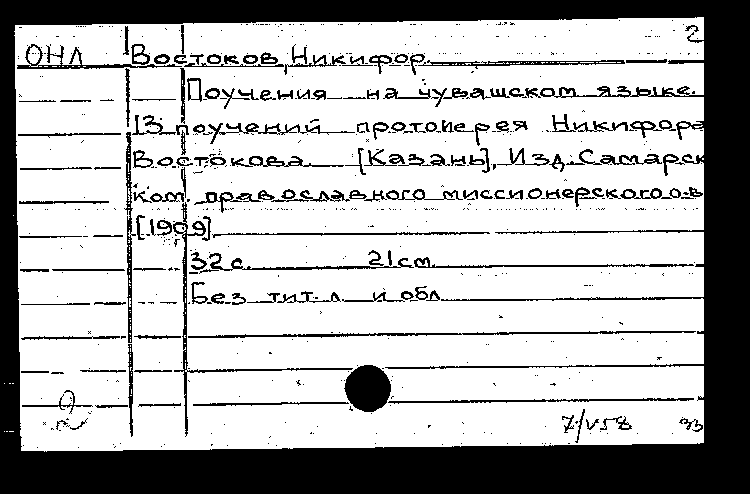 2
ОНЛ Востоков, Никифор.
Поучения на чувашском языке.
13 поучений протоиерея Никифора
Востокова. [Казань], Изд. Самарск
ком. православного миссионерского о-в
[1909].
32 с. 21 см.
Без тит. л. и обл.
2 7/V58